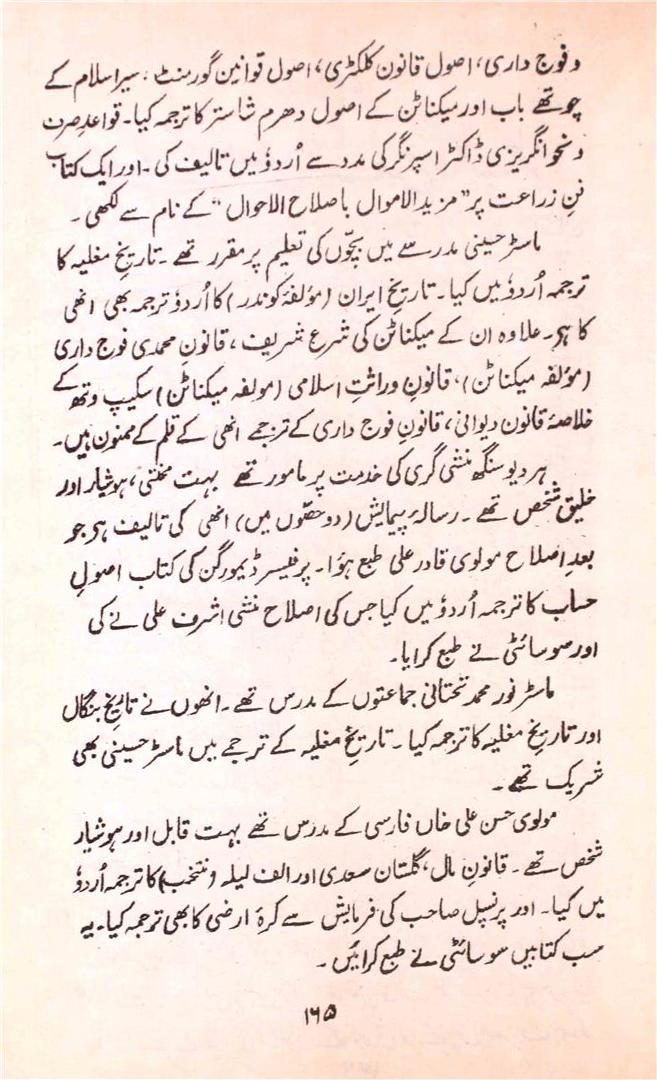 و فوج داری، اصول قانون کلکٹری، اصول قوانین گورمنٹ۔ سیر اسلام کے
چوتھے باب اور میکناٹن کے اصول دھرم شاستر کا ترجمہ کیا۔ قواعدِ صرف
و نحو انگریزی ڈاکٹر اسپرنگر کی مدد سے اُردوٗ میں تالیف کی۔ اور ایک کتاب
فنِ زراعت پر ”مزید الاموال باصلاح الاحوال“ کے نام سے لکھی۔
ماسٹر حسینی مدرسے میں بچّوں کی تعلیم پر مقرر تھے۔ تاریخِ مغلیہ کا
ترجمہ اُردوٗ میں کیا۔ تاریخِ ایران (مؤلفۂ کوندر) کا اُردوٗ ترجمہ بھی انھی
کا ہی۔ علاوہ ان کے میکناٹن کی شرع شریف، قانونِ محمدی فوج داری
(مؤلفہ میکناٹن)، قانونِ وراثتِ اسلامی (مولفہ میکناٹن) سکیپ وتھ کے
خلاصۂ قانون دیوانی، قانونِ فوج داری کے ترجمے انھی کے قلم کے ممنون ہیں۔
ہردیو سنگھ منشی گری کی خدمت پر مامور تھے بہت محنتی، ہوشیار اور
خلیق شخص تھے۔ رسالۂ پیمایش (دو حصّوں میں) انھی کی تالیف ہی جو
بعدِ اصلاح مولوی قادر علی طبع ہوٗا۔ پرفیسر ڈیمورگن کی کتاب اصولِ
حساب کا ترجمہ اُردوٗ میں کیا جس کی اصلاح منشی اشرف علی نے کی
اور سوسائٹی نے طبع کرایا۔
ماسٹر نور محمد تحتانی جماعتوں کے مدرس تھے۔ انھوں نے تاریخِ بنگال
اور تاریخِ مغلیہ کا ترجمہ کیا۔ تاریخِ مغلیہ کے ترجمے میں ماسٹر حسینی بھی
شریک تھے۔
مولوی حسن علی خاں فارسی کے مدرس تھے بہت قابل اور ہوشیار
شخص تھے۔ قانونِ مال، گلستان سعدی اور الف لیلہ (منتخب) کا ترجمہ اُردوٗ
میں کیا۔ اور پرنسپل صاحب کی فرمایش سے کرۂ ارضی کا بھی ترجمہ کیا۔ یہ
سب کتابیں سوسائٹی نے طبع کرائیں۔
۱۶۵